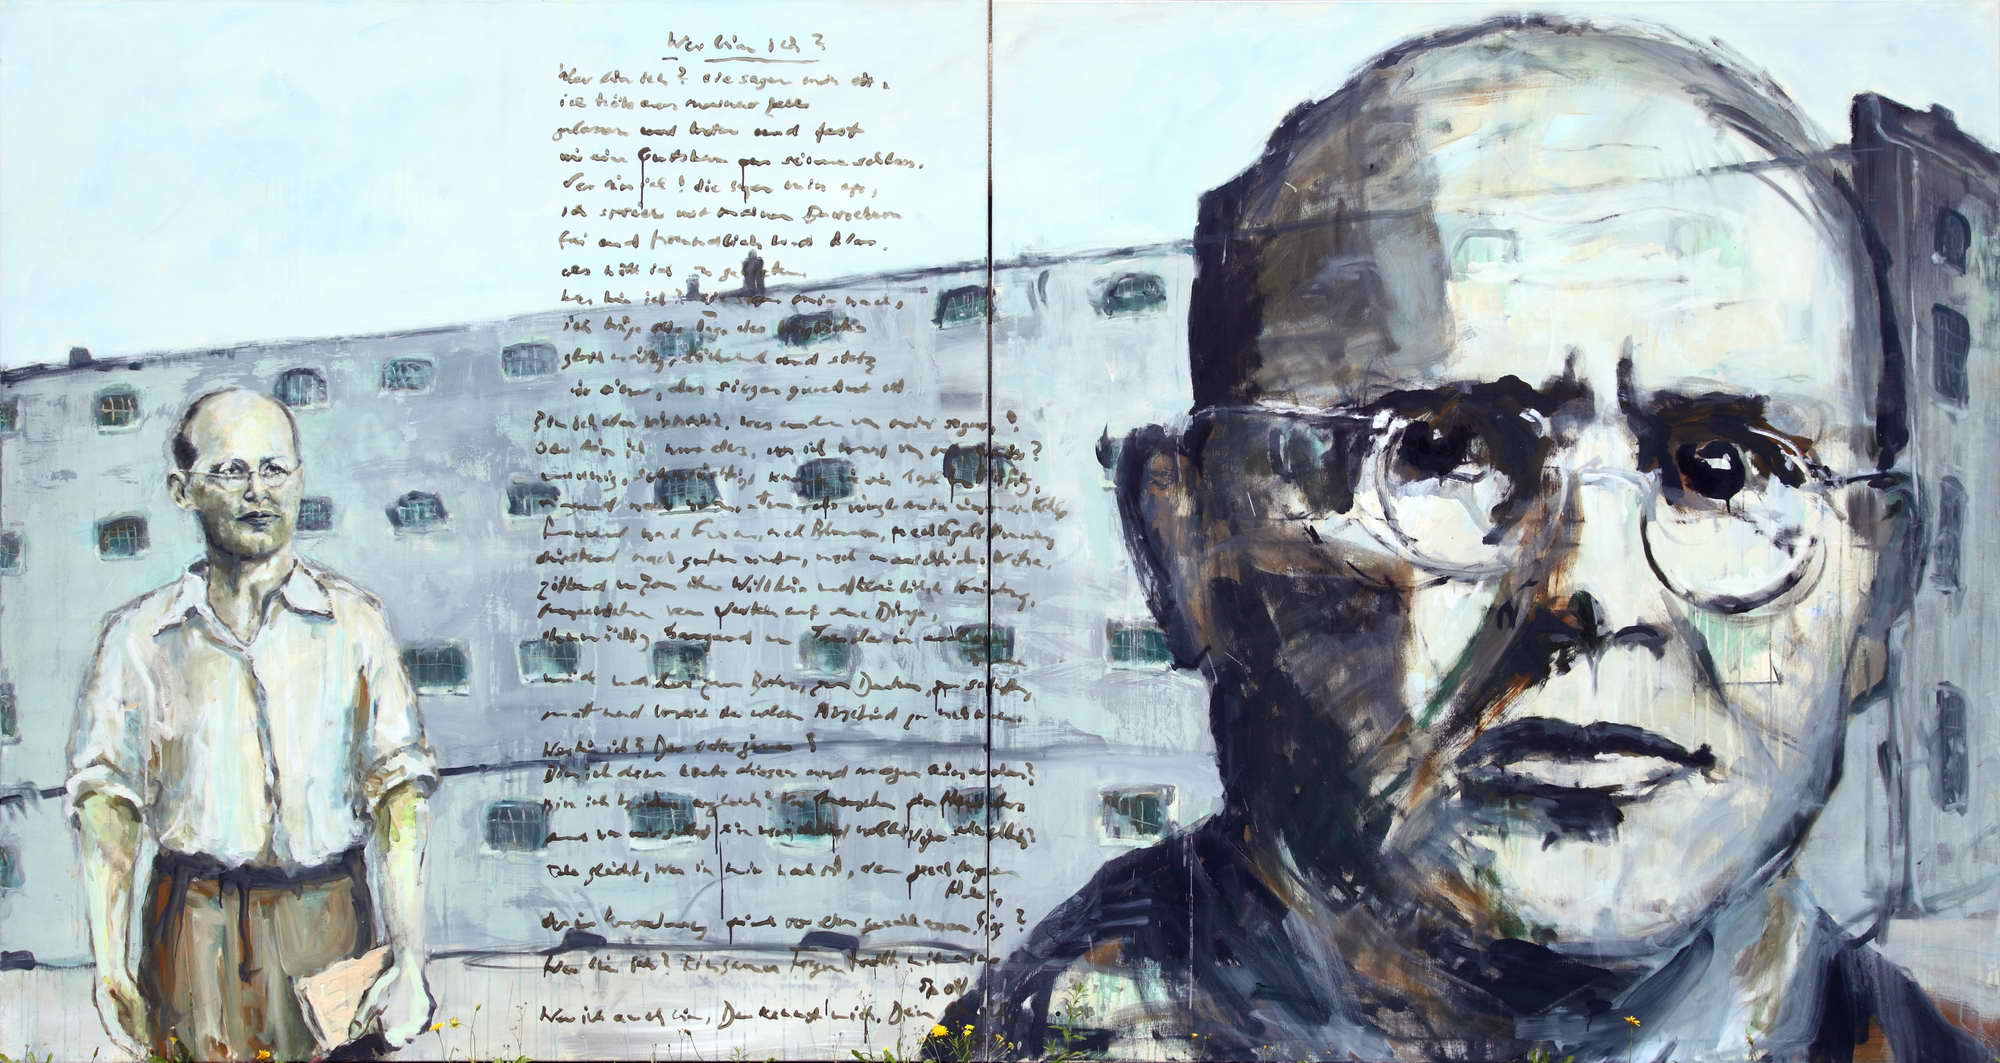 Wer bin ich?
Wer bin ich? Sie sagen mir oft,
ich träte aus meiner Zelle
gelassen und heiter und fest
wie ein Gutsherr aus seinem Schloss.
Wer bin ich? Sie sagen mir oft,
ich spreche mit meinen Bewachern
frei und freundlich und klar,
als hätt ich zu gebieten.
Wer bin ich? Sie sagen mir auch,
ich trüge die Tage des Unglücks
gleichmütig, lächelnd und stolz
wie einer, der Siegen gewohnt ist
Bin ich das wirklich, was andere von mir sagen?
Oder bin ich nur das, was ich von mir weiß?
unruhig, sehnsüchtig, krank, wie ein Vogel im Käfig,
ringend nach
hungernd nach Farben, nach Blumen, nach Vogelstimmen,
dürstend nach guten Worten, nach menschlicher Nähe,
zitternd vor Zorn über Willkür und kleinlichste Kränkung,
umgetrieben vom Warten auf große Dinge,
ohnmächtig bangend um Freunde in endloser
Ferne
müde und leer zum Beten, zum Denken, zum Schaffen,
matt und bereit von allem Abschied zu nehmen.
Wer bin ich? Der oder jener?
Bin ich denn heute dieser und morgen ein andrer?
Bin ich beides zugleich? Vor Menschen ein Heuchler
und vor mir selbst ein verächtlich wehleidiger Schwächling?
Oder gleicht, was in mir noch ist, dem geschlagenen
Heer,
das in Unordnung weicht vor schon gewonnenem Sieg?
Wer bin ich? Einsames Fragen treibt mit mir
Spott
Wer ich auch bin, Du kennst mich, Dein